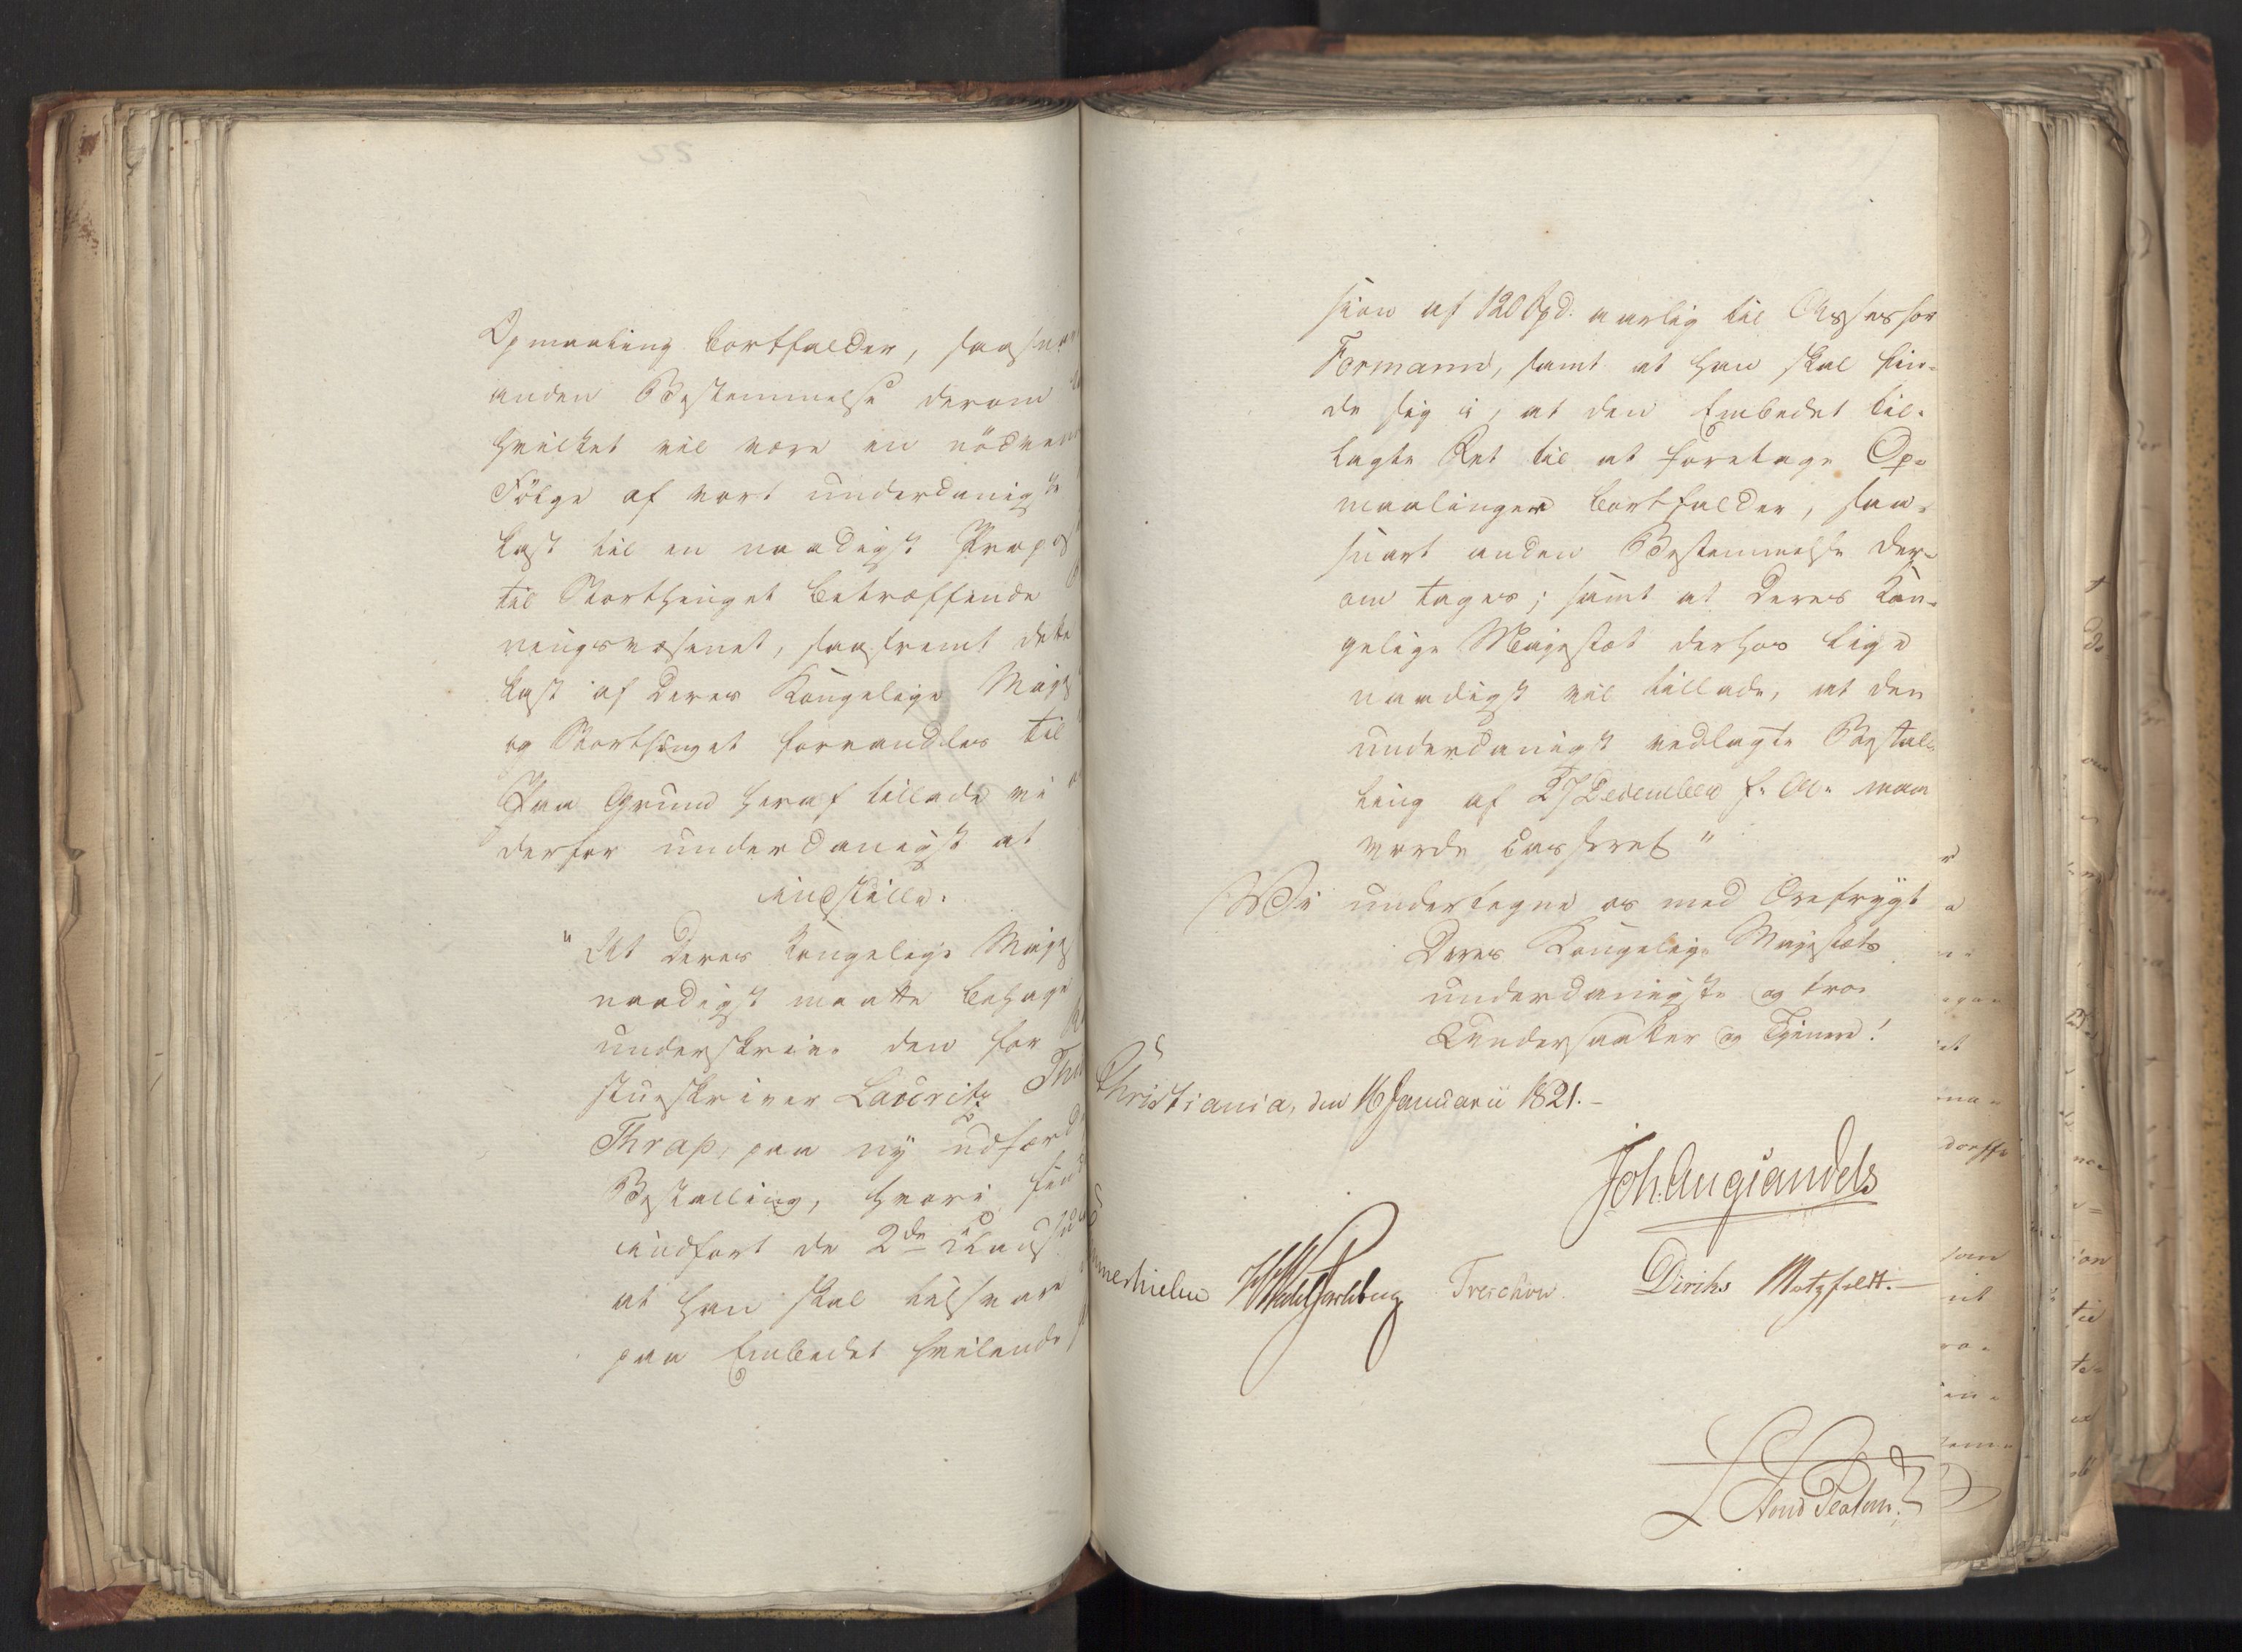 Opmaaling bortfalder, saasna
anden Bestemmelse derom
hvilket vil være en nödven
Fölge af vort underdanigste
kast til en naadigst Propos
til Storthinget betræffende
ningsvæsenet, saafremt dette
kast af Deres Kongelige Maje
og Storthinget forvandles til
Paa Grund heraf tillade vi
derfor underdanigst at
indstille:
"At Deres Kongelige Maje
naadigst maatte behage
underskrive den for
stueskriver Lauritz Th
Thrap, paa ny udfærd
Bestalling, hvori find
indfört de 2de Clausu
at han skal tilsvare
paa Embedet hvilende
sion af 120 Spd. aarlig til Assessor
Formann, samt at han skal fin-
de sig i, at den Embedet til-
lagte Ret til at foretage Op-
maalinger bortfalder, saa-
snart anden Bestemmelse der-
om tages; samt at Deres Kon-
gelige Majestæt derhos lige
naadigst vil tillade, at den
underdanigst vedlagte Bestal-
ling af 27 December f. A. maa
vorde casseret"
Vi undertegne os med Ærefrygt
Deres Kongelige Majestæts
underdanigste og troe
Undersaatter og Tjenere!
Christiania, den 16 Januarii 1821.-
Joh. Aug Sandels
mmerhielm Wedel Jarlsberg Treschow. Diriks Motzfeldt.-